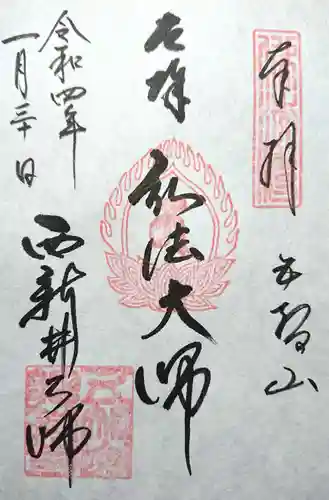 奉拝
五智山
厄除
弘法大師
令和四年
一月三十日
西新井大師